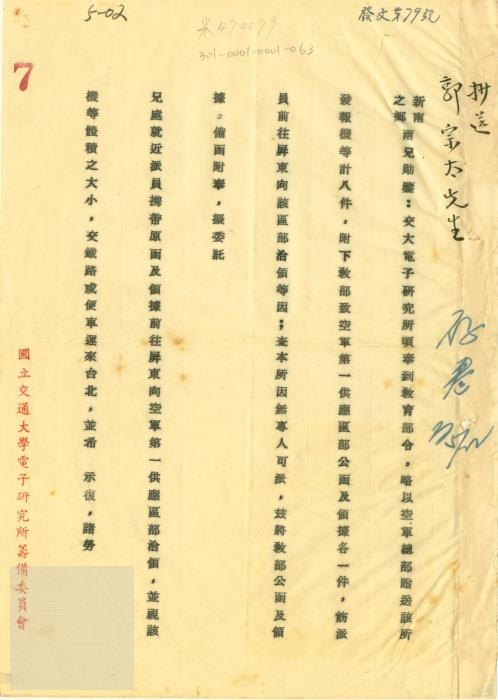 5-02
米470079
301-0001-0001-063
發文第79號
7
抄送
郭宗太先生
新南
之鄉 兩兄勛鑒：交大電子研究所頃奉到教育部令，略以空軍總部贈送該所
發報機等計八件，附下教部致空軍第一供應區部公函及領據各一件，飭派
員前往屏東向該區部洽領等因；查本所因無專人可派，茲將教部公函及領
據。備函附奉，擬委託
兄處就近派員携帶原函及領據前往屏東向空軍第一供應區部洽領，並視該
機等體積之大小，交鐵路或便車運來台北，並希 示復，諸勞
國立交通大學電子研究所籌備委員會